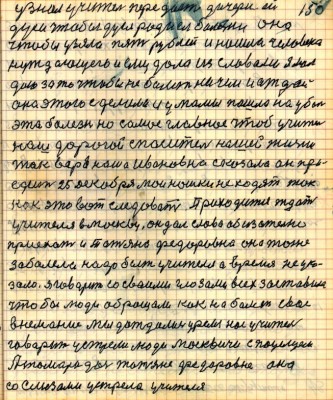 узнал учитель передать дочери ей 150
душе чтобы душа родился болезни она
чтобы узяла пять рублей и нашла человека
нуждающего и ему дала из словами я вам
даю за то чтобы не болеть ничем и отдай
она этого сделала и у мамы пошла на убыль
эта болезнь но самое главное чтоб учитель
наш дорогой спаситель нашей жизни
так вера наша Ивановна сказала он при-
едит 25 декабря мои ножки не ходят так
как это вот следовать. Приходится ждать
учителя в москву, он дал слово обязательно
приехать и Татьяна федоровна она тоже
заболела надо быть учителя а время не ука-
зало. я говорит со своими глазами всех заставил
чтобы люди обращали как на более свое
внемание мы дождались урем нас учитель
говорит устрели люди москвичи с поцелуем
Потом дьх татьяне федоровне она
со слюзами устрела учителя